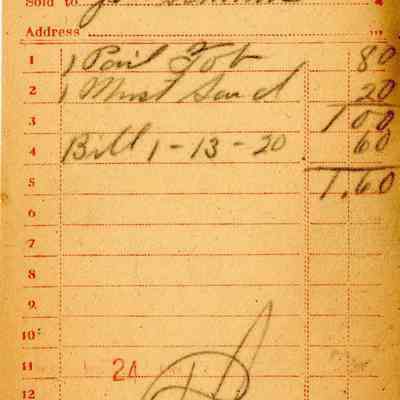 Sold to
Address
1 1 Pail Tob 80
2 1 Must Sard 20
3 1 00
4 Bill 1-13-20 60
5 1.60
6
7
8
9
10
11 24
12